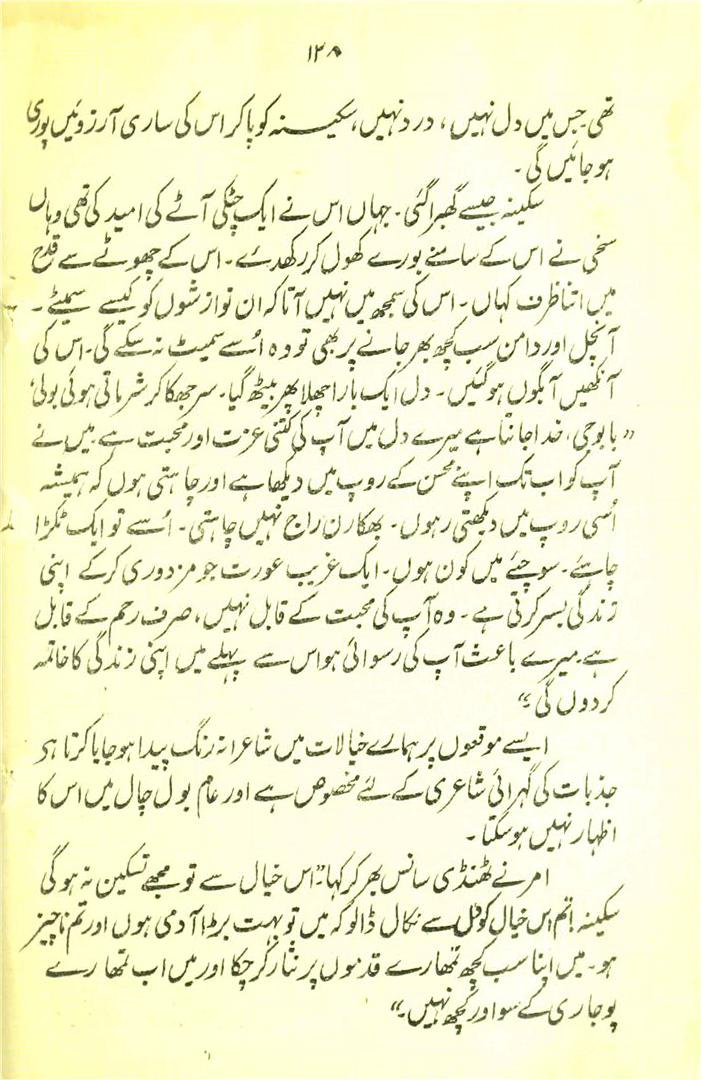 ۱۲۸
تھی جس میں دل نہیں، درد نہیں، سکینہ کو پا کر اس کی ساری آرزوئیں پوری
ہو جائیں گی۔
سکینہ جیسے گھبرا گئی۔ جہاں اس نے ایک چٹکی آٹے کی امید کی تھی وہاں
سخی نے اس کے سامنے بورے کھول کر رکھدے۔ اس کے چھوٹے سے قدح
میں اتنا ظرف کہاں۔ اس کی سمجھ میں نہیں آتا کہ ان نوازشوں کو کیسے سمیٹے۔
آنچل اور دامن سب کچھ بھر جانے پر بھی تو وہ اُسے سمیٹ نہ سکے گی۔ اس کی
آنکھیں آبگوں ہو گئیں۔ دل ایک بار اچھلا پھر بیٹھ گیا۔ سر جھکا کر شرماتی ہوئی بولی،
”بابو جی، خدا جانتا ہے میرے دل میں آپ کی کتنی عزت اور محبت ہے میں نے
آپ کو اب تک اپنے محسن کے روپ میں دیکھا ہے اور چاہتی ہوں کہ ہمیشہ
اُسی روپ میں دیکھتی رہوں۔ بھکارن راج نہیں چاہتی۔ اُسے تو ایک ٹکڑا
چاہئے۔ سوچئے میں کون ہوں۔ ایک غریب عورت جو مزدوری کر کے اپنی
زندگی بسر کرتی ہے۔ وہ آپ کی محبت کے قابل نہیں، صرف رحم کے قابل
ہے۔ میرے باعث آپ کی رسوائی ہو اس سے پہلے میں اپنی زندگی کا خاتمہ
کر دوں گی۔“
ایسے موقعوں پر ہمارے خیالات میں شاعرانہ رنگ پیدا ہو جایا کرتا ہے
جذبات کی گہرائی شاعری کے لئے مخصوص ہے اور عام بول چال میں اس کا
اظہار نہیں ہو سکتا۔
امر نے ٹھنڈی سانس بھر کر کہا۔ ”اس خیال سے تو مجھے تسکین نہ ہو گی
سکینہ! تم اس خیال کو دل سے نکال ڈالو کہ میں تو بہت بڑا آدمی ہوں اور تم ناچیز
ہو۔ میں اپنا سب کچھ تمھارے قدموں پر نثار کر چکا اور میں اب تمھارے
پوجاری کے سوا اور کچھ نہیں۔“